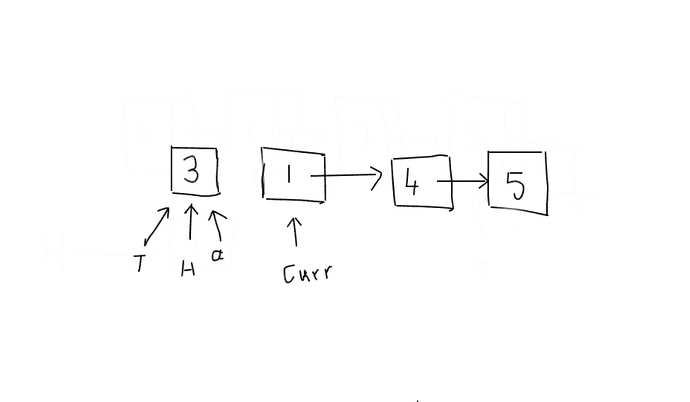 3 1 4 5
T H a Curr